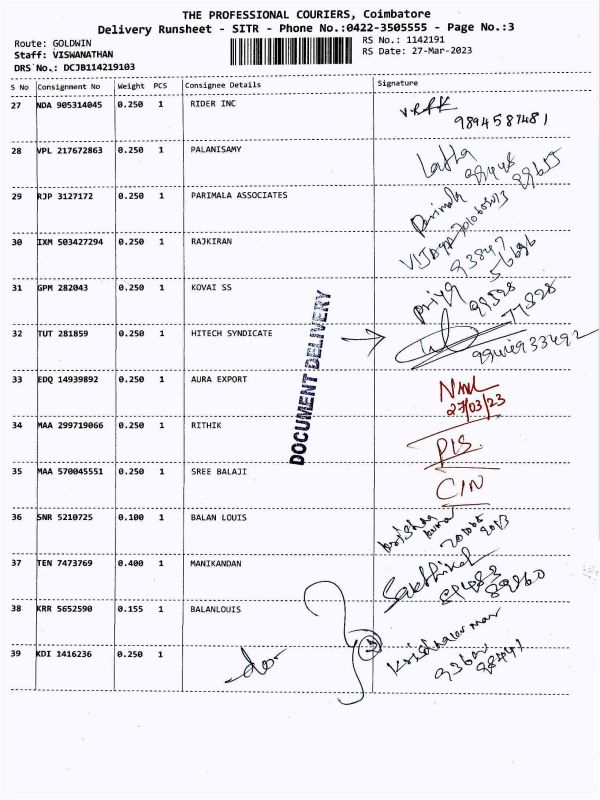 THE PROFESSIONAL COURIERS, Coimbatore
Delivery Runsheet - SITR - Phone No.:0422-3505555 - Page No.:3
Route: GOLDWIN
Staff: VISWANATHAN
DRS No.: DCJB114219103
RS No.: 1142191
RS Date: 27-Mar-2023
S No Consignment No Weight PCS Consignee Details Signature
27 NDA 905314045 0.250 1 RIDER INC
9894587481
28 VPL 217672863 0.250 1 PALANISAMY
Latha
29 RJP 3127172 0.250 1 PARIMALA ASSOCIATES
Parimala
30 IXM 503427294 0.250 1 RAJKIRAN
VIJAYA
93847
56696
31 GPM 282043 0.250 1 KOVAI SS
Priya
99528
77828
32 TUT 281859 0.250 1 HITECH SYNDICATE
DOCUMENT DELIVERY
33 EDQ 14939892 0.250 1 AURA EXPORT
27/03/23
34 MAA 299719066 0.250 1 RITHIK
PIS
35 MAA 570045551 0.250 1 SREE BALAJI
CIN
36 SNR 5210725 0.100 1 BALAN LOUIS
Krishna
kumar
37 TEN 7473769 0.400 1 MANIKANDAN
Sakthivel
38 KRR 5652590 0.155 1 BALANLOUIS
39 KDI 1416236 0.250 1
-do-